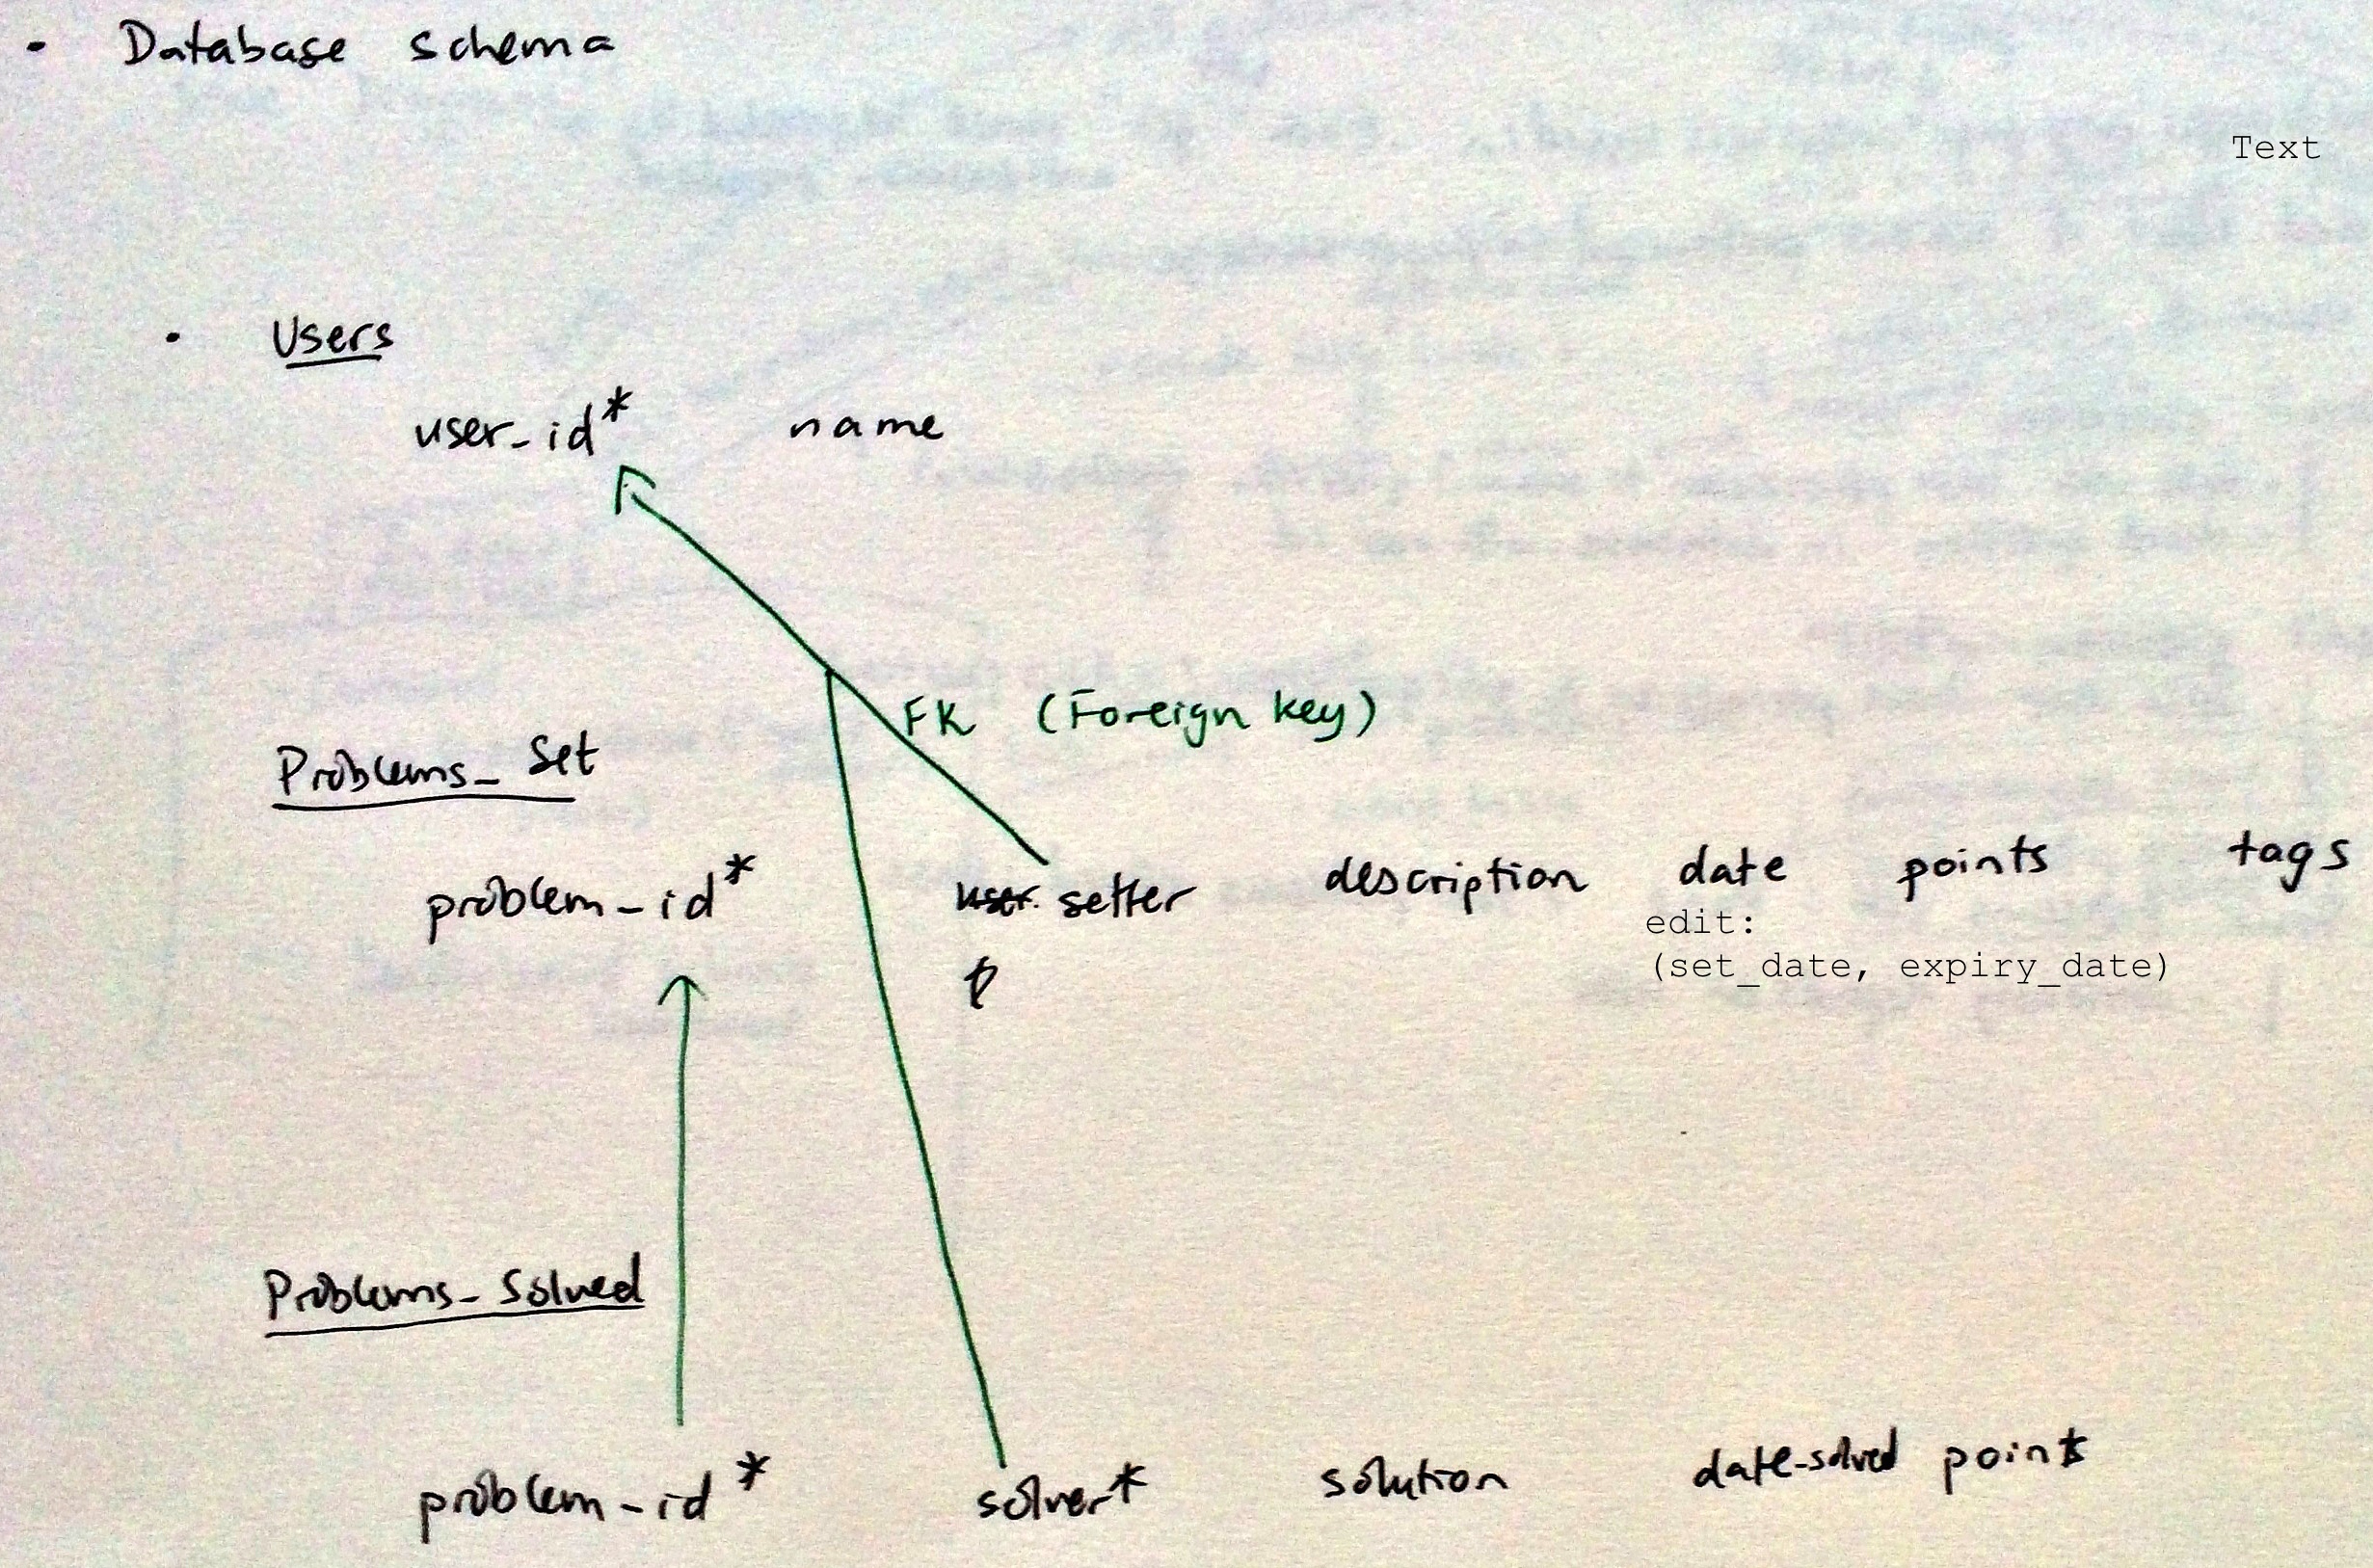 • Database schema
Text
• Users
user_id* name
FK (Foreign key)
Problems_Set
problem_id* user setter description date points tags
edit:
(set_date, expiry_date)
Problems_Solved
problem_id* solver* solution date-solved points